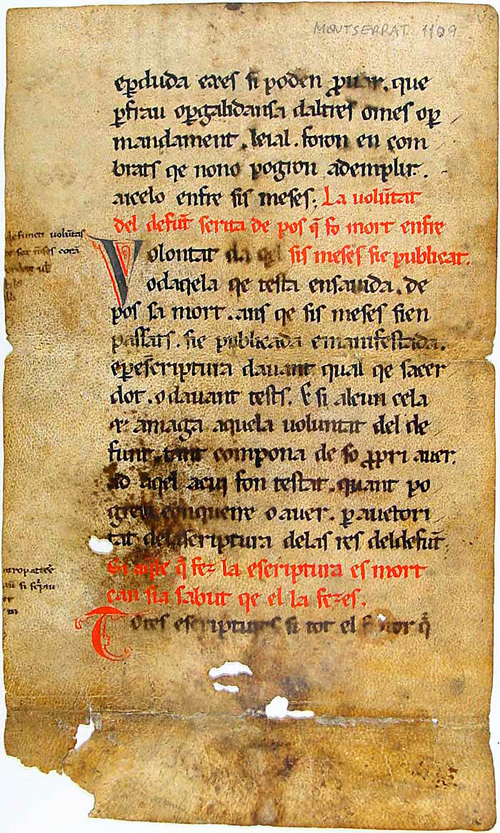 MONTSERRAT 1109
eperduda eres si poden prouar. que
perfrau opergabdansa daltres omes oper
mandament. leial. foron en com
brats qe nono pogron ademplir.
aicelo enfre sis meses. La uolūtat
del defūt serita de pos q̄ fo mort enfre
Volontat sis meses sie publicat.
odaqela qe testa ensauida. de
pos sa mort. ans qe sis meses sien
passats. sie publicada emanifestada.
eperescriptura dauant qual qe sacer
dot. odauant tests. E si alcun cela
amaga aquela uoluntat del de
funt. tant compona de so propri auer.
ad aqel acui fon testat. quant po
gra conquerre o auer. per auctori
tat delascriptura delas res deldefūt.
Si aqle q̄ fez la escriptura es mort
can sia sabut qe el la fezes.
Totes escriptures si tot el q̄
defuncti uolūtas